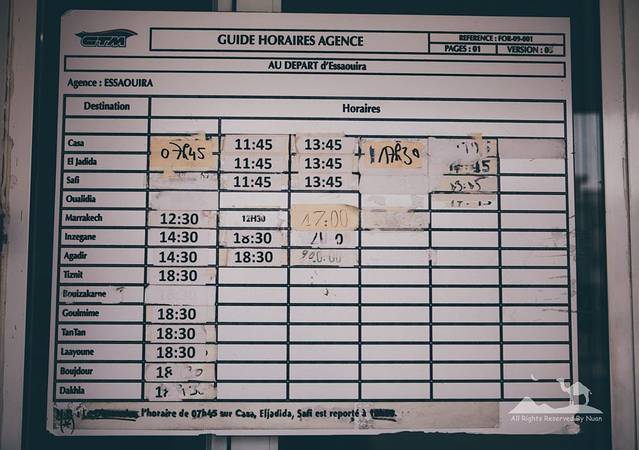 CTM
GUIDE HORAIRES AGENCE
REFERENCE : FOR-09-001
PAGES : 01 VERSION :
AU DEPART d'Essaouira
Agence : ESSAOUIRA
Destination Horaires
Casa 07H45 11:45 13:45 17H30
El Jadida 11:45 13:45
Safi 11:45 13:45
Oualidia
Marrakech 12:30 12H30 17:00
Inzegane 14:30 18:30
Agadir 14:30 18:30
Tiznit 18:30
Bouizakarne
Goulmime 18:30
TanTan 18:30
Laayoune 18:30
Boujdour
Dakhla
l'horaire de 07h45 sur Casa, Eljadida, Safi est reporté à
All Rights Reserved By Nuan